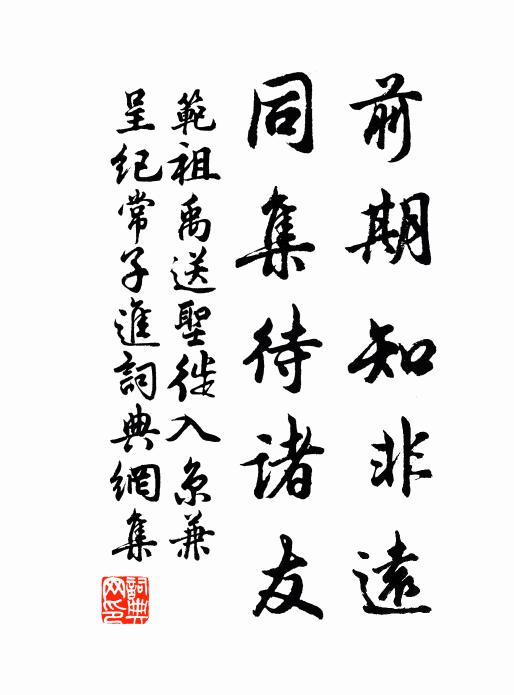 前期知非遠
同集待諸友
範祖禹送聖徙入京兼
呈紀常子進詞典網集
詞典網印